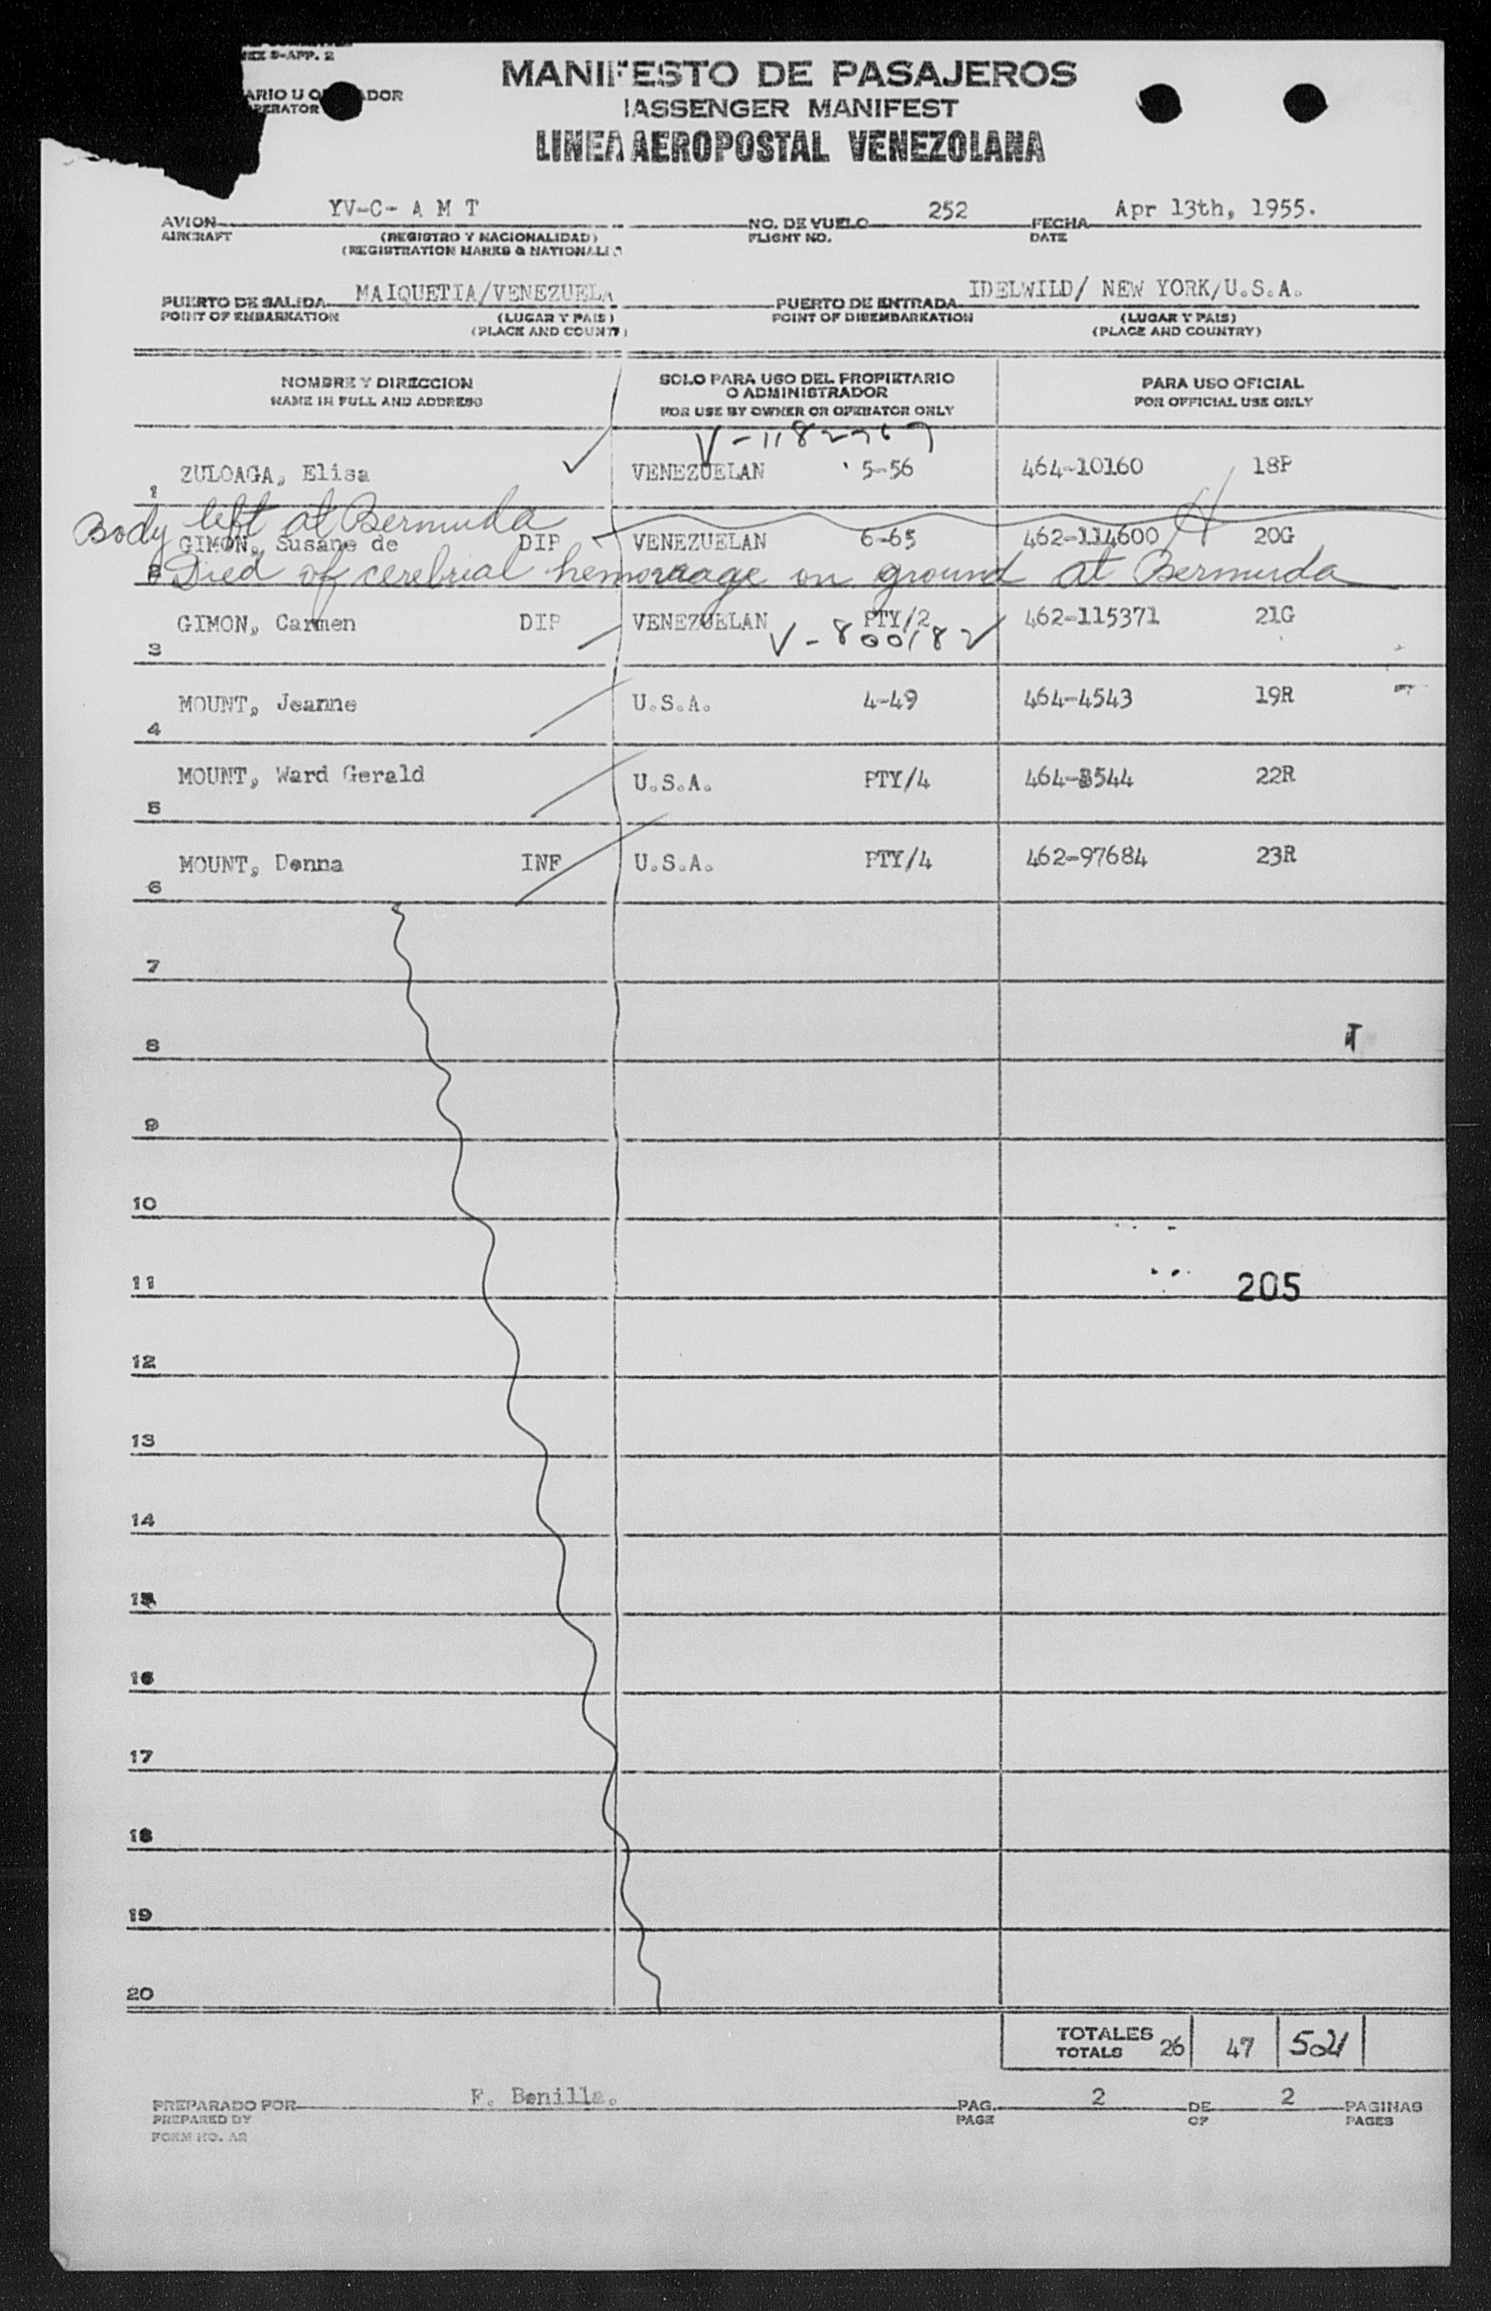 S-APP. 2
ARIO U O DOR
PERATOR
MANIFESTO DE PASAJEROS
PASSENGER MANIFEST
LINEA AEROPOSTAL VENEZOLANA
AVION YV-C- A M T NO. DE VUELO 252 FECHA Apr 13th, 1955.
AIRCRAFT (REGISTRO Y NACIONALIDAD) FLIGHT NO. DATE
(REGISTRATION MARKS & NATIONALI
PUERTO DE SALIDA MAIQUETIA/VENEZUELA PUERTO DE ENTRADA IDELWILD/ NEW YORK/U.S.A.
POINT OF EMBARKATION (LUGAR Y PAIS) POINT OF DISEMBARKATION (LUGAR Y PAIS)
(PLACE AND COUNTY) (PLACE AND COUNTRY)
NOMBRE Y DIRECCION SOLO PARA USO DEL PROPIETARIO O ADMINISTRADOR PARA USO OFICIAL
NAME IN FULL AND ADDRESS FOR USE BY OWNER OR OPERATOR ONLY FOR OFFICIAL USE ONLY
1 ZULOAGA, Elisa VENEZUELAN 5-56 464-10160 18P
Body left at Bermuda
2 GIMON, Susane de DIP VENEZUELAN 6-65 462-114600 20G
Died of cerebrial hemorraage on ground at Bermuda
3 GIMON, Carmen DIP VENEZUELAN PTY/2 462-115371 21G
V-800182
4 MOUNT, Jeanne U.S.A. 4-49 464-4543 19R
5 MOUNT, Ward Gerald U.S.A. PTY/4 464-3544 22R
6 MOUNT, Donna INF U.S.A. PTY/4 462-97684 23R
7
8
9
10
11 205
12
13
14
15
16
17
18
19
20
TOTALES 26 47 521
TOTALS
PREPARADO POR F. Bonilla. PAG. 2 DE 2 PAGINAS
PREPARED BY PAGE OF PAGES
FORM NO. A2